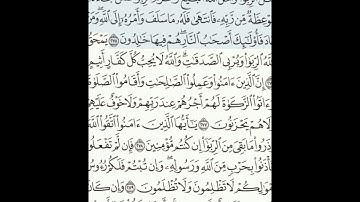 وْعِظَةٌ مِّن رَّبِّهِۦ فَٱنتَهَىٰ فَلَهُۥ مَا سَلَفَ وَأَمْرُهُۥٓ إِلَى ٱللَّهِ وَمَ
دَ فَأُو۟لَٰٓئِكَ أَصْحَٰبُ ٱلنَّارِ هُمْ فِيهَا خَٰلِدُونَ ٢٧٥ يَمْحَقُ
ٱللَّهُ ٱلرِّبَوٰا۟ وَيُرْبِى ٱلصَّدَقَٰتِ وَٱللَّهُ لَا يُحِبُّ كُلَّ كَفَّارٍ أَثِيمٍ
إِنَّ ٱلَّذِينَ ءَامَنُوا۟ وَعَمِلُوا۟ ٱلصَّٰلِحَٰتِ وَأَقَامُوا۟ ٱلصَّلَوٰةَ
ءَاتَوُا۟ ٱلزَّكَوٰةَ لَهُمْ أَجْرُهُمْ عِندَ رَبِّهِمْ وَلَا خَوْفٌ عَلَيْهِمْ
لَا هُمْ يَحْزَنُونَ ٢٧٧ يَٰٓأَيُّهَا ٱلَّذِينَ ءَامَنُوا۟ ٱتَّقُوا۟ ٱللَّهَ
ذَرُوا۟ مَا بَقِىَ مِنَ ٱلرِّبَوٰٓا۟ إِن كُنتُم مُّؤْمِنِينَ ٢٧٨ فَإِن لَّمْ تَفْعَلُوا۟
أْذَنُوا۟ بِحَرْبٍ مِّنَ ٱللَّهِ وَرَسُولِهِۦ وَإِن تُبْتُمْ فَلَكُمْ رُءُوسُ
مْوَٰلِكُمْ لَا تَظْلِمُونَ وَلَا تُظْلَمُونَ ٢٧٩ وَإِن كَانَ